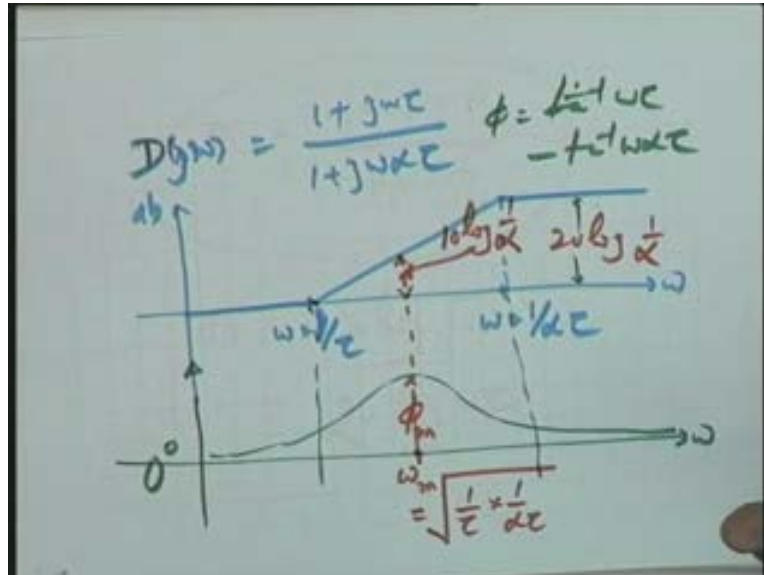 D(jω) = 1 + jωτ / 1 + jωατ
φ = tan⁻¹ ωτ
− tan⁻¹ ωατ
db
10 log 1/α
20 log 1/α
ω
ω = 1/τ
ω = 1/ατ
φm
0°
ω
ωm
= √(1/τ × 1/ατ)